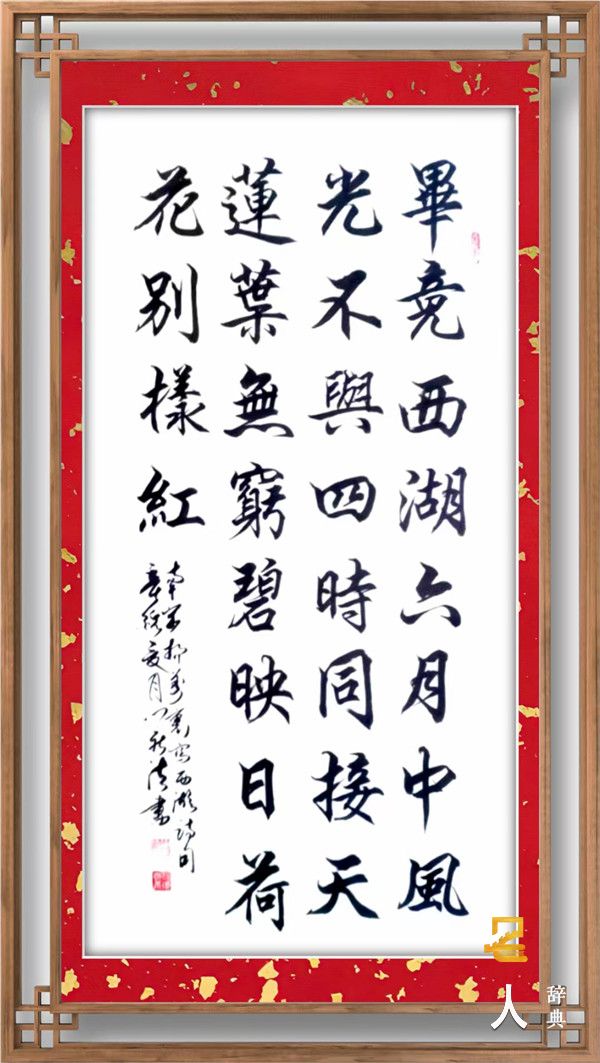 畢竟西湖六月中風
光不與四時同接天
蓮葉無窮碧映日荷
花别樣紅
西湖诗句
人
辞典